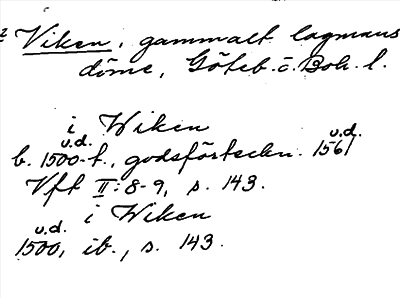 Viken, gammalt lagmans
döme, Göteb. o. Boh. l.
i Wiken
u.d. u.d.
b. 1500-t., godsförteckn. 1561
Vft II: 8-9, s. 143.
i Wiken
u.d.
1500, ib., s. 143.